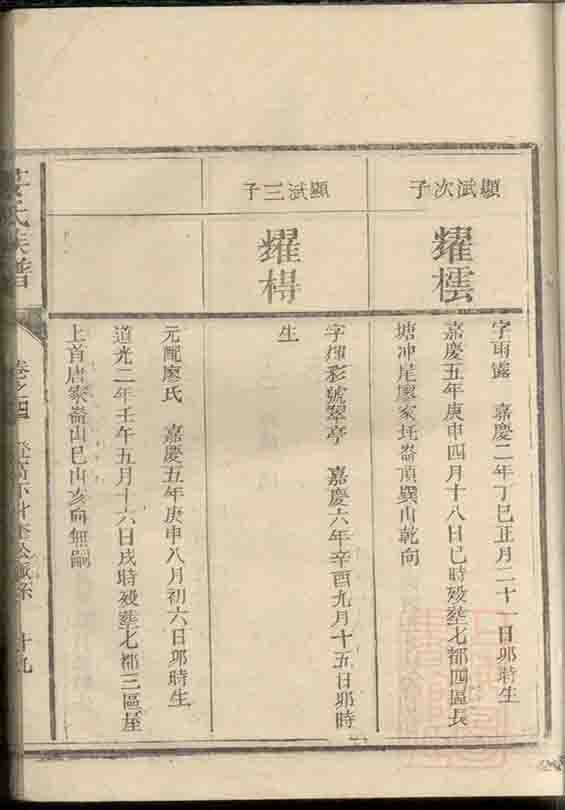 顯斌次子
耀橒
字雨露 嘉慶二年丁巳正月二十一日卯時生
嘉慶五年庚申四月十八日巳時歿塟七都四區長
塘冲尾廖家坵崙頂巽山乾向
顯斌三子
耀榯
字煇彩號翠亭 嘉慶六年辛酉九月十五日卯時
生
元配廖氏 嘉慶五年庚申八月初六日卯時生
道光二年壬午五月十六日戌時歿塟七都三區屋
上首唐家崙山巳山亥向無嗣
氏族譜
卷之四
廿九